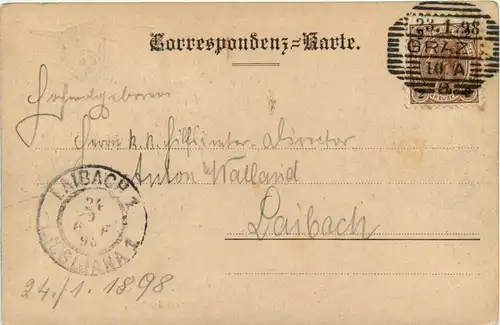 23.1.98
GRAZ
10 A
Correspondenz=Karte.
Hochwolgeboren
Herrn k. k. Director
Anton Walland
Laibach
LAIBACH 1
24
98
LJUBLJANA 1
24./1. 1898.